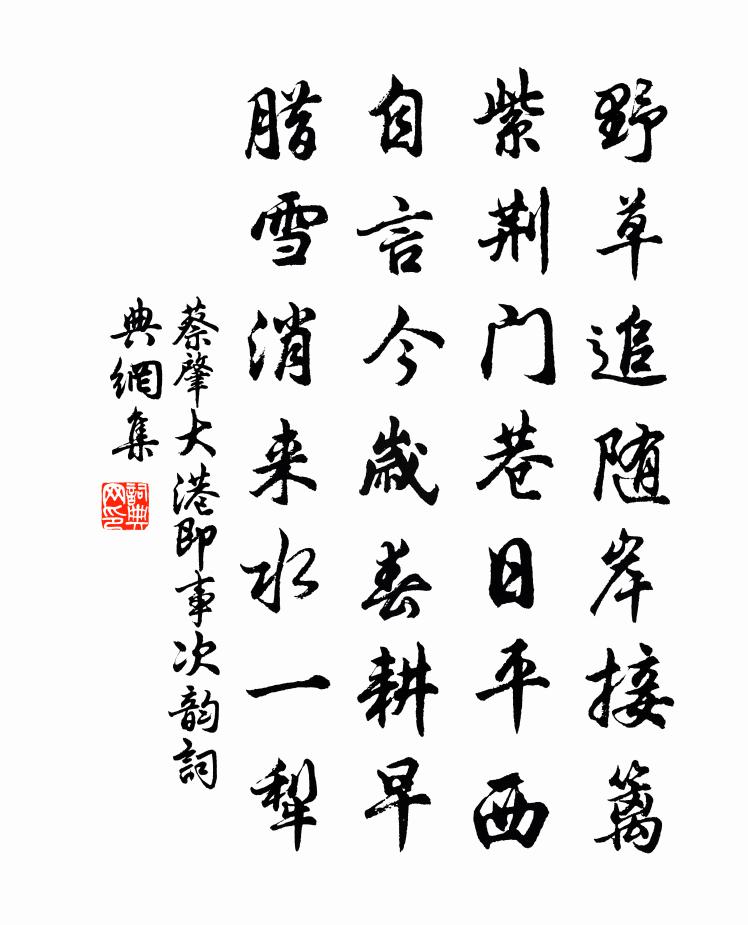 野草追随岸接篱
紫荆门巷日平西
自言今歲春耕早
腊雪消来水一犁
蔡肇大港即事次韵詞
典網集
詞典网印